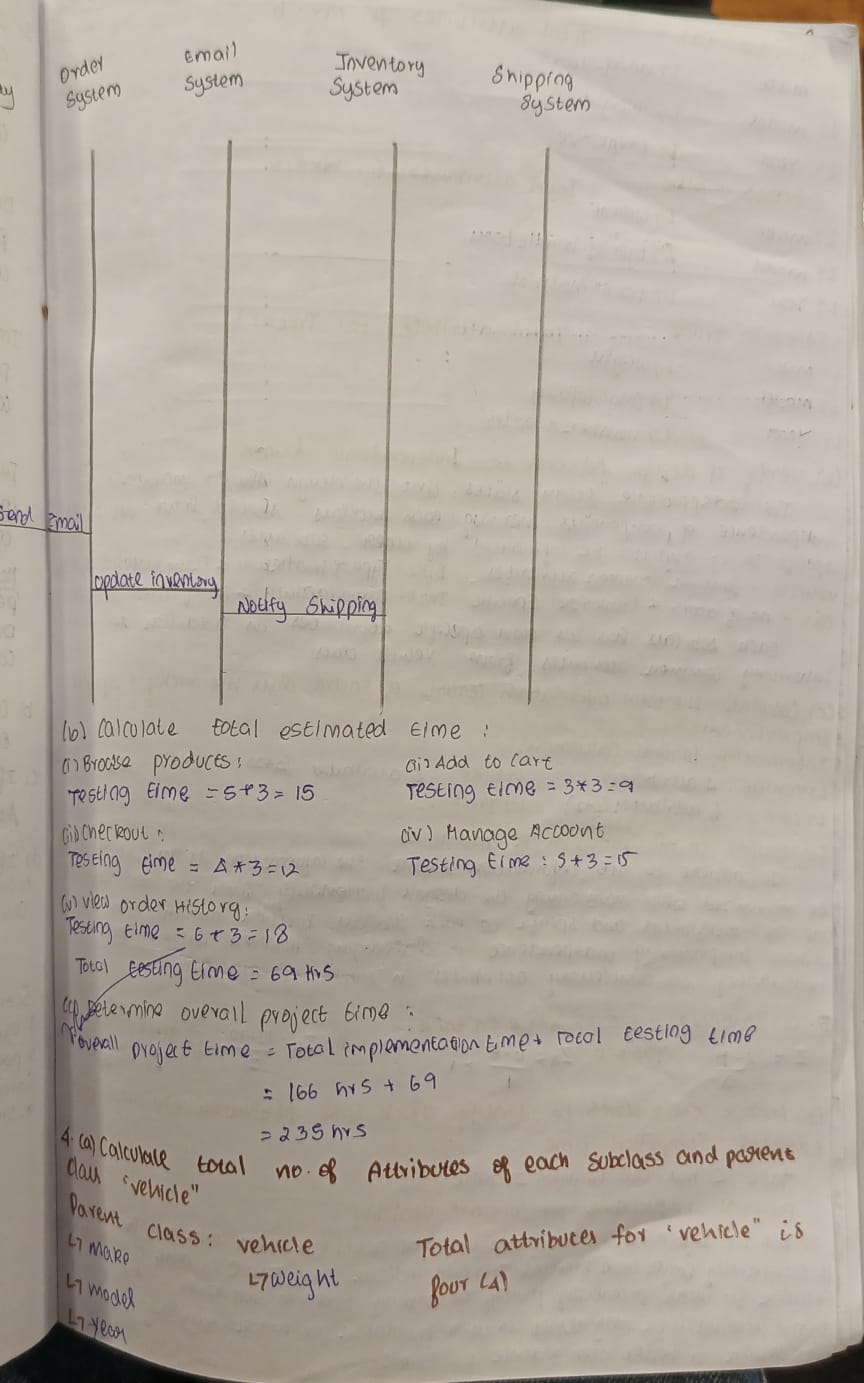 Order System
Email System
Inventory System
Shipping System
Send Email
Update inventory
Notify Shipping
(b) Calculate total estimated time :
(i) Browse products :
Testing time = 5*3 = 15
(ii) Add to Cart
Testing time = 3*3 = 9
(iii) Checkout :
Testing time = 4*3 = 12
(iv) Manage Account
Testing time : 5*3 = 15
(v) View Order History :
Testing time = 6*3 = 18
Total testing time = 69 Hrs
(c) Determine overall project time :
overall project time = Total implementation time + Total testing time
= 166 hrs + 69
= 235 hrs
4. (a) Calculate total no. of Attributes of each subclass and parent
class "vehicle"
Parent class : vehicle
↳ Make
↳ model
↳ year
↳ weight
Total attributes for "vehicle" is
four (4)